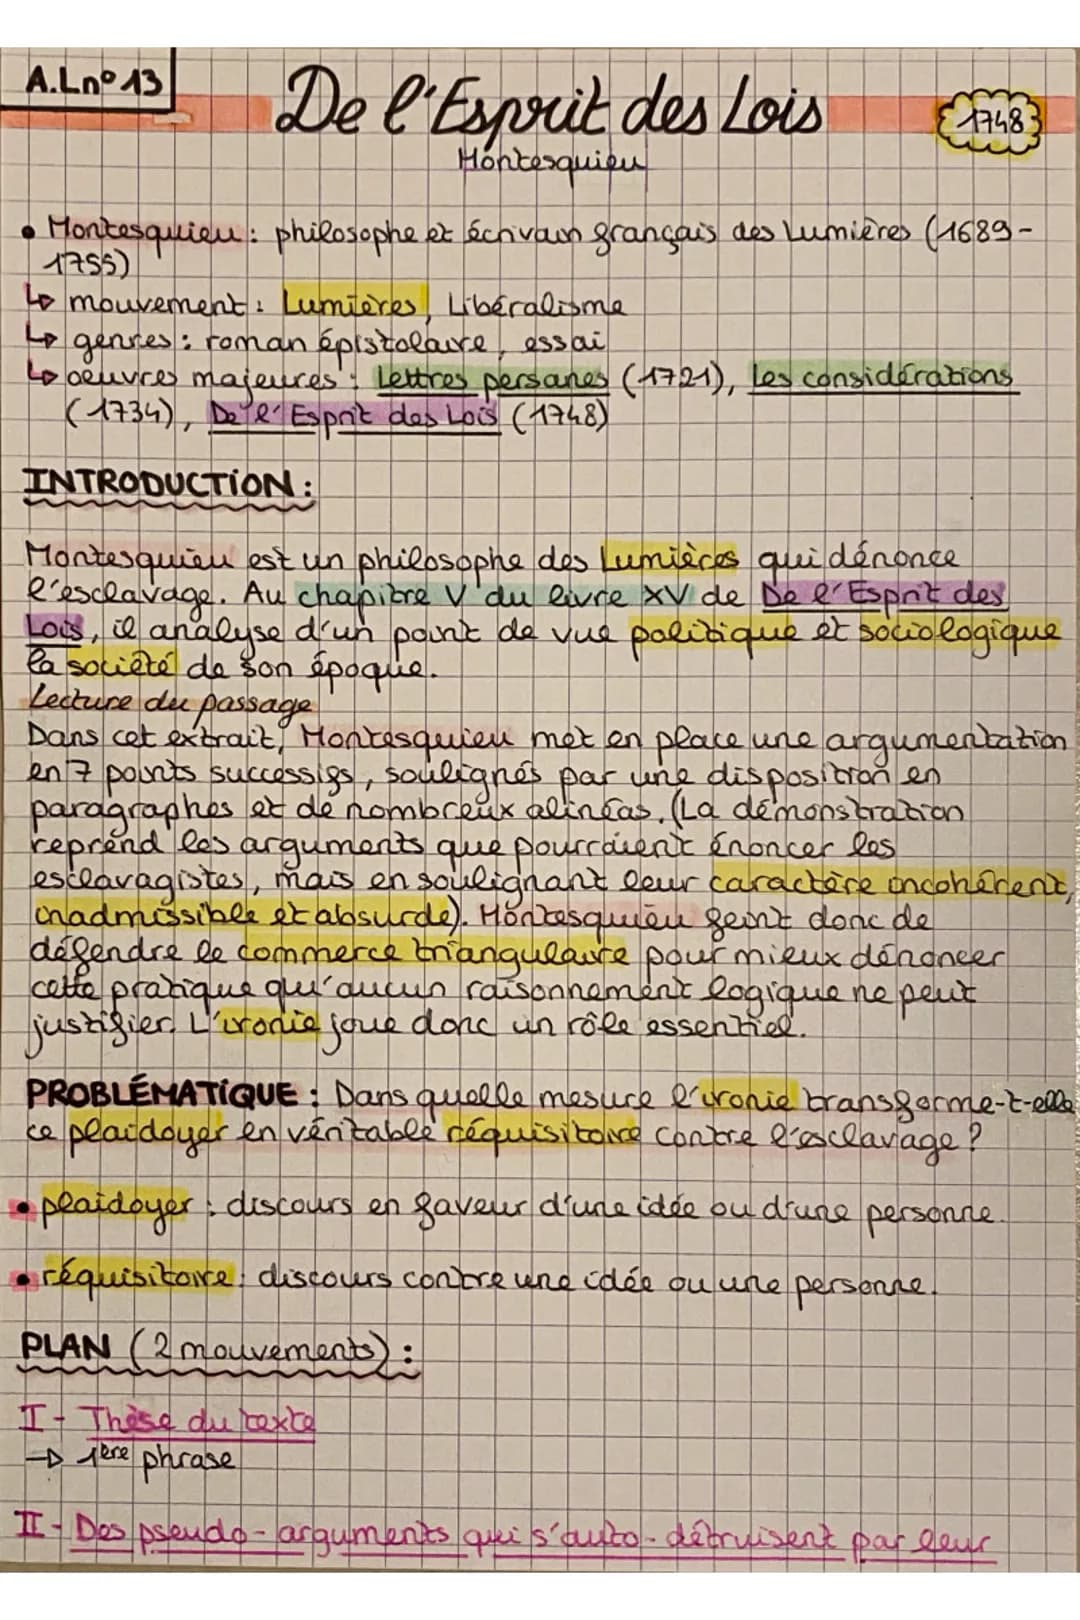 A.L n° 13
De l'Esprit des Lois
1748
Montesquieu
• Montesquieu : philosophe et écrivain français des Lumières (1689-
1755)
↳ mouvement : Lumières, Libéralisme
↳ genres : roman épistolaire, essai
↳ oeuvres majeures : Lettres persanes (1721), Les considérations
(1734), De l'Esprit des Lois (1748)
INTRODUCTION :
Montesquieu est un philosophe des Lumières qui dénonce
l'esclavage. Au chapitre V du livre XV de De l'Esprit des
Lois, il analyse d'un point de vue politique et sociologique
la société de son époque.
Lecture du passage
Dans cet extrait, Montesquieu met en place une argumentation
en 7 points successifs, soulignés par une disposition en
paragraphes et de nombreux alinéas. (La démonstration
reprend les arguments que pourraient énoncer les
esclavagistes, mais en soulignant leur caractère incohérent,
inadmissible et absurde). Montesquieu feint donc de
défendre le commerce triangulaire pour mieux dénoncer
cette pratique qu'aucun raisonnement logique ne peut
justifier. L'ironie joue donc un rôle essentiel.
PROBLÉMATIQUE : Dans quelle mesure l'ironie transforme-t-elle
ce plaidoyer en véritable réquisitoire contre l'esclavage ?
• plaidoyer : discours en faveur d'une idée ou d'une personne.
• réquisitoire : discours contre une idée ou une personne.
PLAN (2 mouvements) :
I - Thèse du texte
→ 1ère phrase
II - Des pseudo-arguments qui s'auto-détruisent par leur